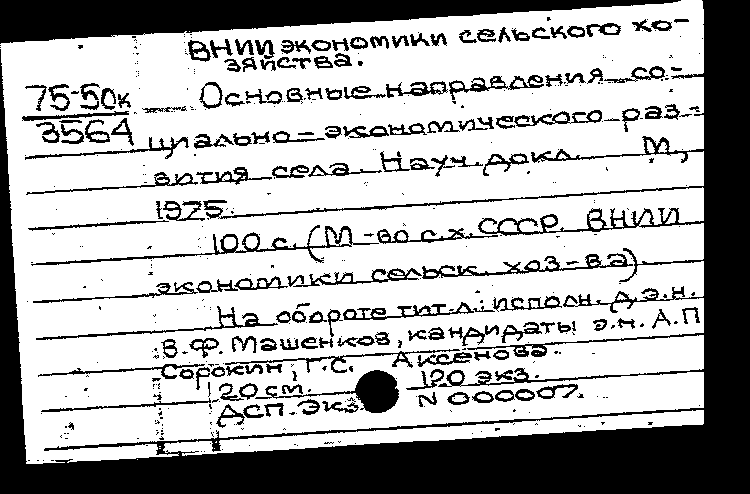 ВНИИ экономики сельского хо-
зяйства.
75-50к
3564
Основные направления со-
циально-экономического раз-
вития села. Науч. докл. М.,
1975.
100 с. (М-во с.х. СССР. ВНИИ
экономики сельск. хоз-ва).
На обороте тит.л.: исполн. д.э.н.
В.Ф. Машенков, кандидаты э.н. А.П
Сорокин, Г.С. Аксенова.
20 см. 120 экз.
ДСП. Экз. N 000007.